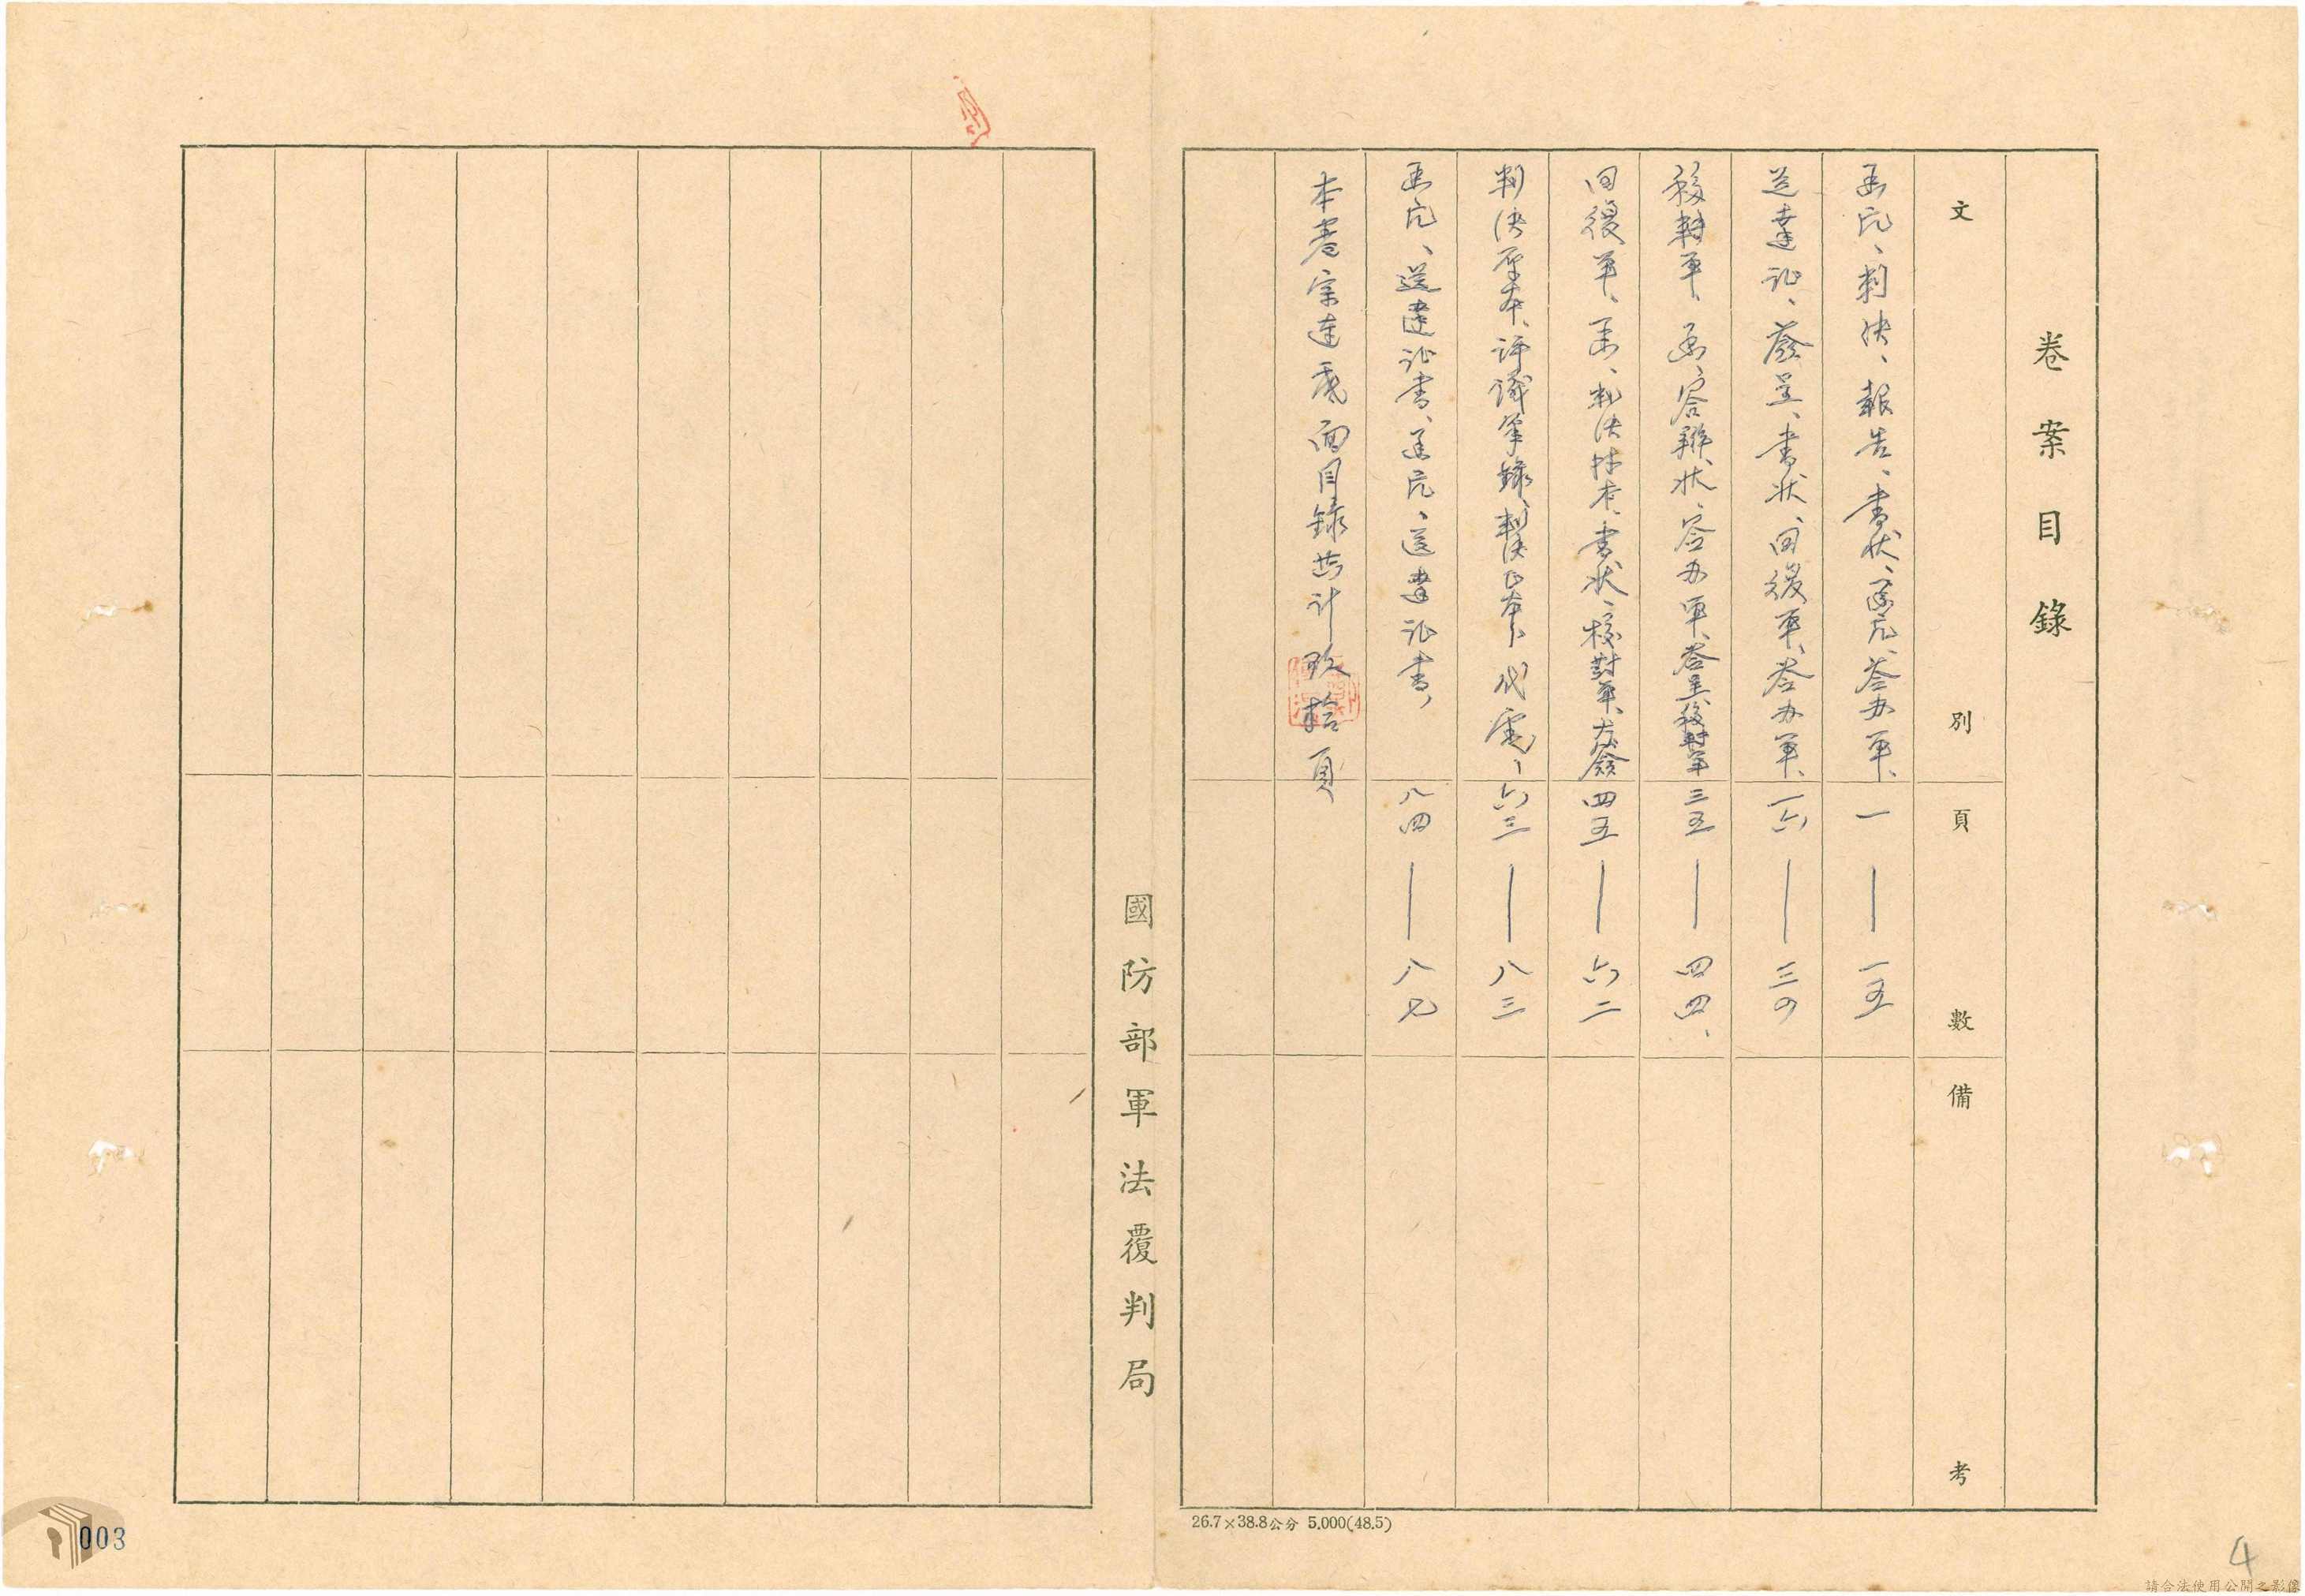 卷案目錄
文別 頁數 備考
函片、判決、報告、書狀、函片、答办單、 一——一五
送達证、簽呈、書狀、回復單、答办單、 一六——三四
移轉單、函、答辯狀、答办單、簽呈、移轉單 三五——四四、
回復單、函、判決抄本、書狀、校對單、 四五——六二
判決原本、評議筆錄、判決正本、代電、 六三——八三
函片、送達证書、函片、送達证書、 八四——八七
本卷宗連底面目錄共计玖拾頁
國防部軍法覆判局
26.7×38.8公分 5.000(48.5)
003
4
請合法使用公開之影像